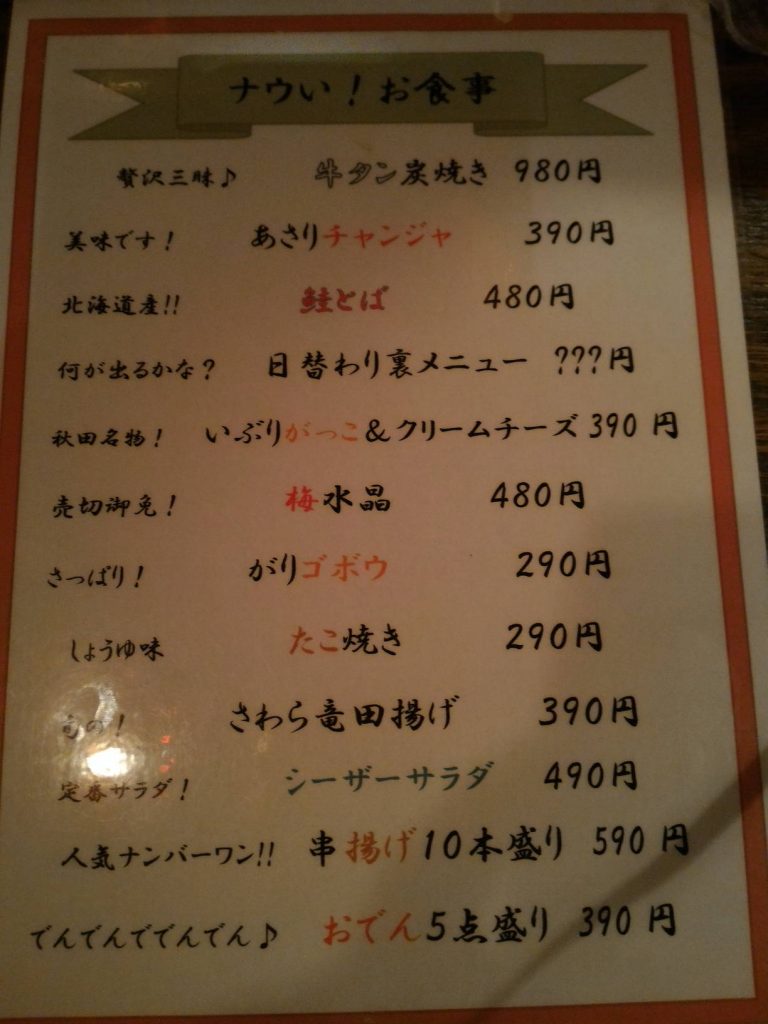 ナウい！お食事
贅沢三昧♪ 牛タン炭焼き 980円
美味です！ あさりチャンジャ 390円
北海道産!! 鮭とば 480円
何が出るかな？ 日替わり裏メニュー ???円
秋田名物！ いぶりがっこ&クリームチーズ 390円
売切御免！ 梅水晶 480円
さっぱり！ がりゴボウ 290円
しょうゆ味 たこ焼き 290円
旬の！ さわら竜田揚げ 390円
定番サラダ！ シーザーサラダ 490円
人気ナンバーワン!! 串揚げ10本盛り 590円
でんでんででんでん♪ おでん5点盛り 390円